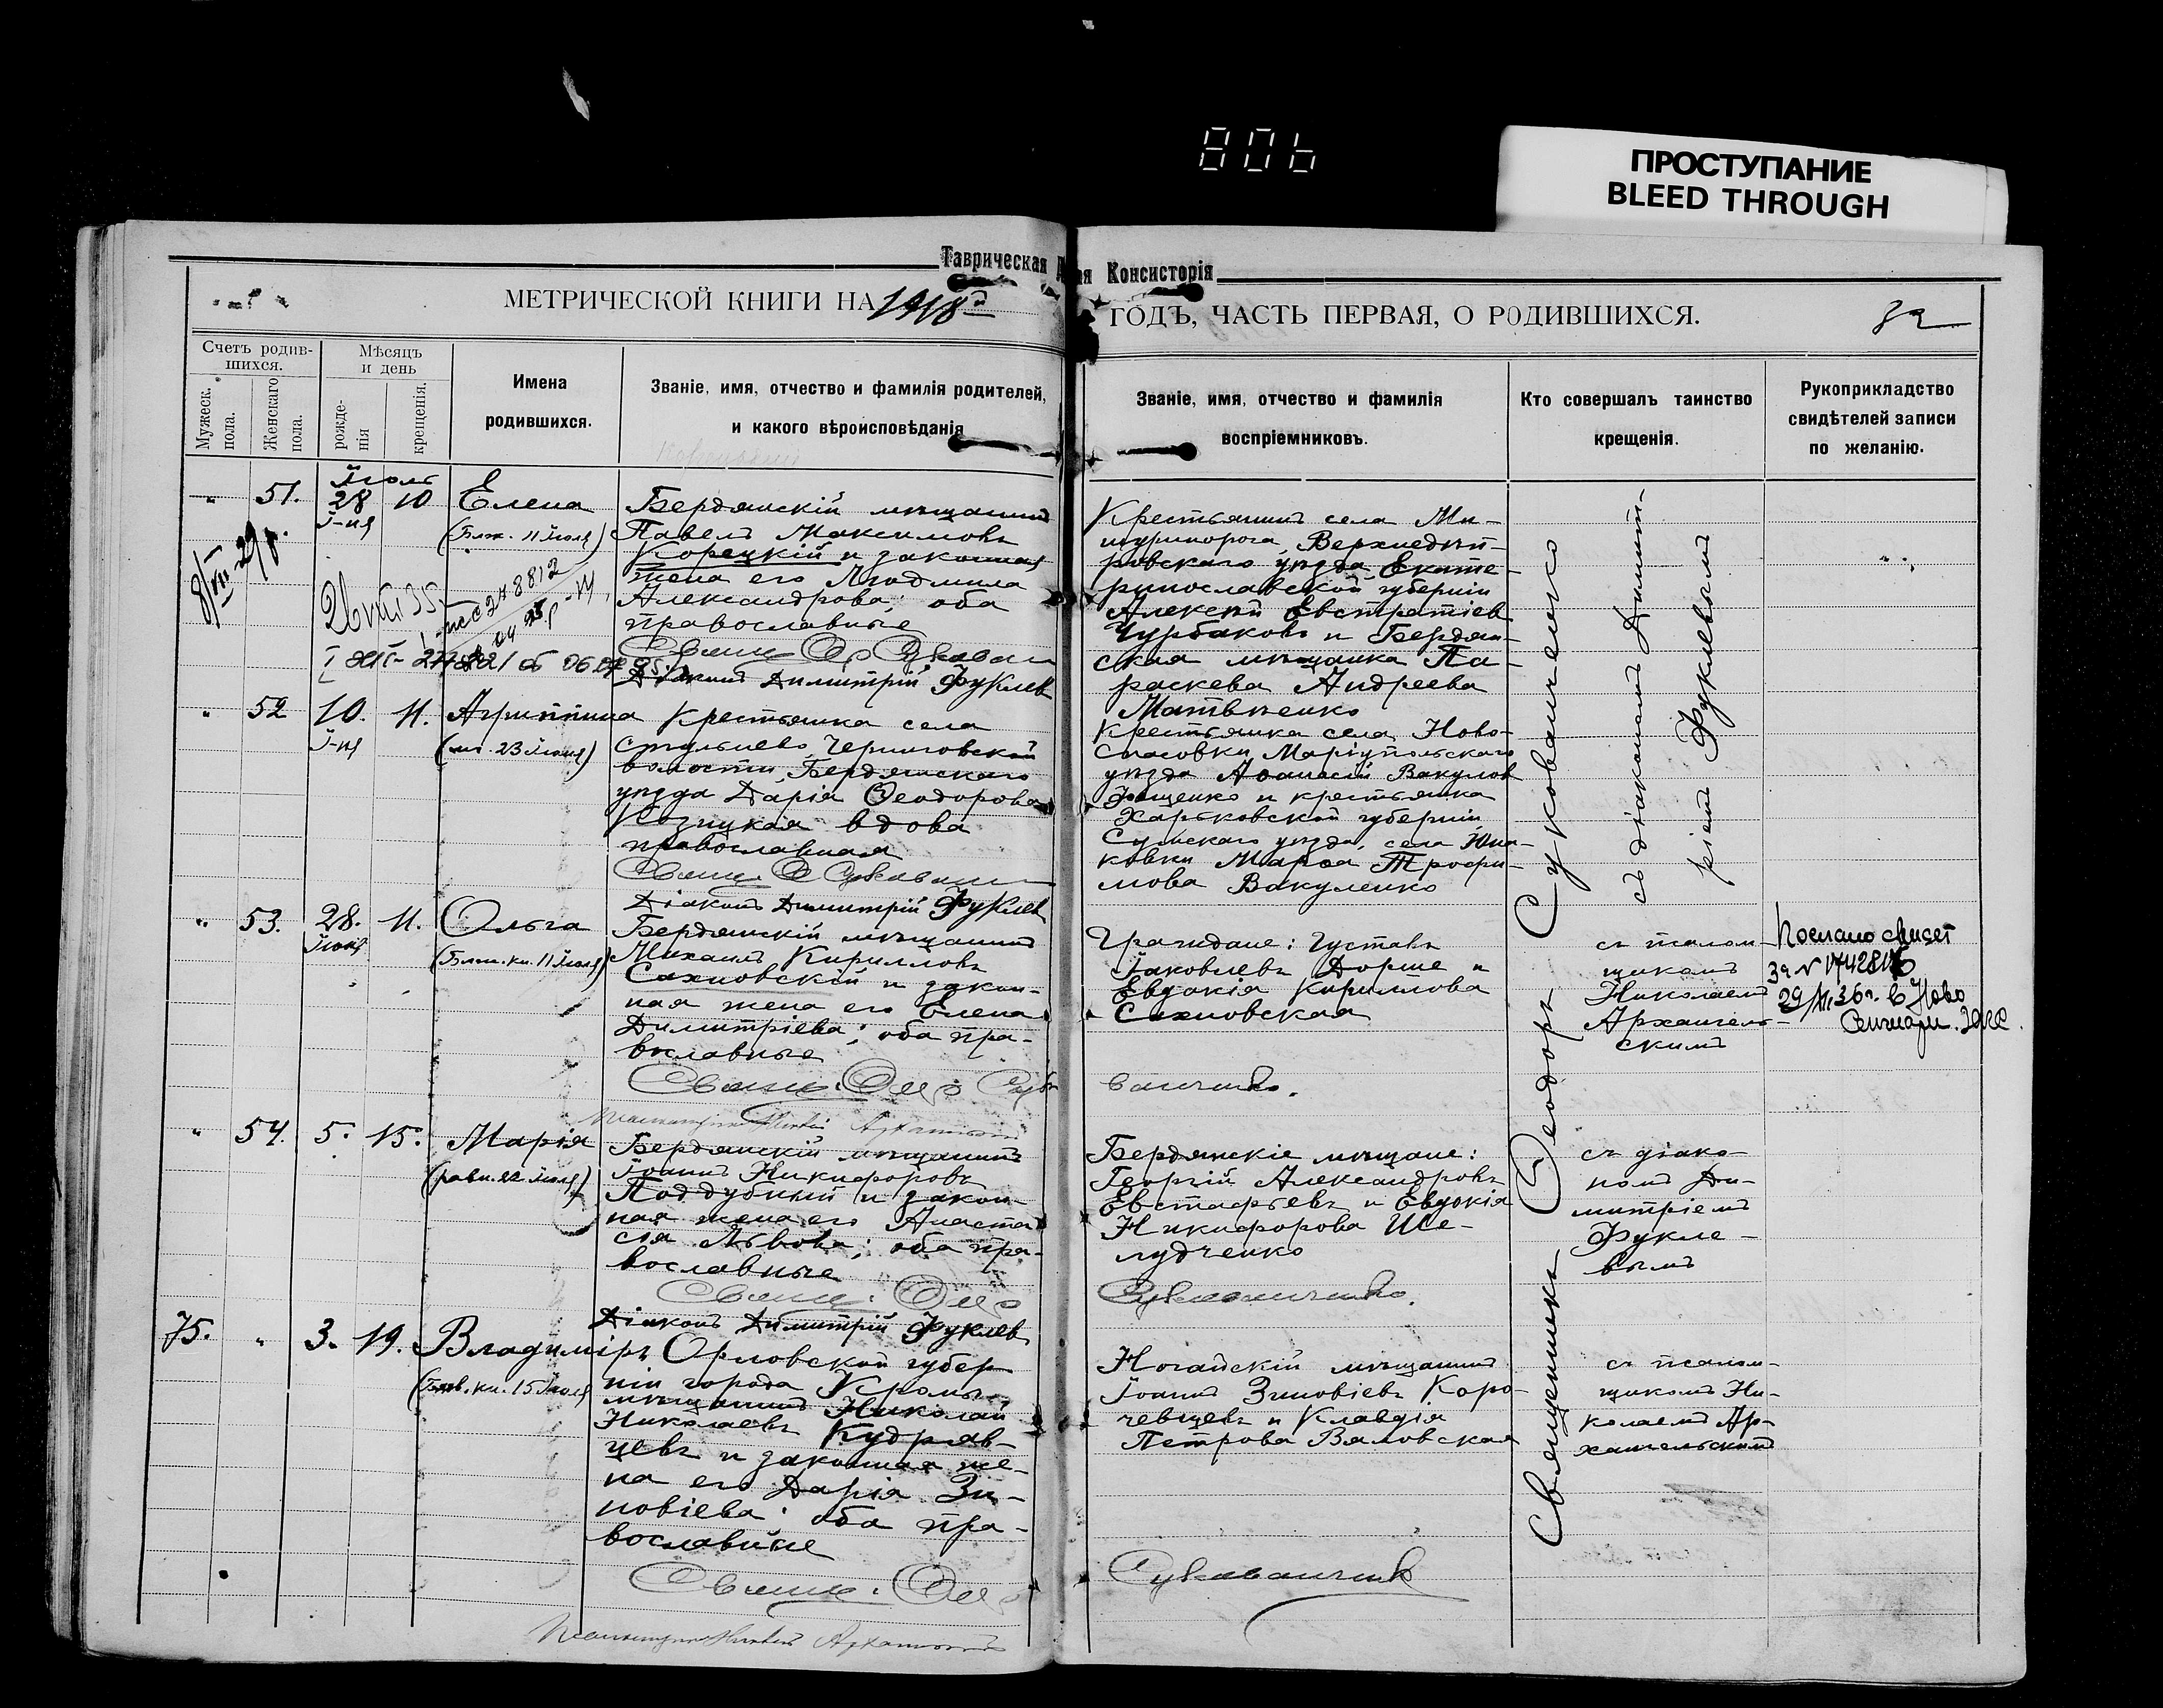 806
ПРОСТУПАНИЕ
BLEED THROUGH
Таврическая
ая Консисторія
МЕТРИЧЕСКОЙ КНИГИ НА 1918
ГОДЪ, ЧАСТЬ ПЕРВАЯ, О РОДИВШИХСЯ.
Счетъ родив-
шихся.
Мужеск. пола.
Женскаго пола.
Мѣсяцъ
и день
рожде-
нія
крещенія.
Имена
родившихся.
Званіе, имя, отчество и фамилія родителей,
и какого вѣроисповѣданія
Званіе, имя, отчество и фамилія
воспріемниковъ.
Кто совершалъ таинство
крещенія.
Рукоприкладство
свидѣтелей записи
по желанію.
Іюль
51. 28 10 Елена
І-ня
(Блж. 11 Іюля)
Бердянскій мѣщанинъ
Павелъ Максимовъ
Корецкій и законная
жена его Людмила
Александрова; оба
православные
Діаконъ Димитрій Фуклев
Крестьянинъ села Ми-
шуринорога, Верхнеднѣп-
ровскаго уѣзда Екате-
ринославской губерніи
Алексѣй Евстратіев
Чурбаковъ и Бердян-
ская мѣщанка Па-
раскева Андреева
Матвѣенко
52 10. 11. Агриппина
І-ня
(мч. 23 Іюня)
Крестьянка села
Стульнево, Черниговской
волости, Бердянскаго
уѣзда Дарія Ѳеодорова
Козицкая вдова
православная
Діаконъ Димитрій Фуклев
Крестьянка села Ново-
спасовки, Маріупольскаго
уѣзда Аѳанасій Вакулов
Фащенко и крестьянка
Харьковской губерніи
Сумскаго уѣзда, села Юна-
ковки Марѳа Трофи-
мова Вакуленко
53. 28. 11. Ольга
Іюня
(Блж. кн. 11 Іюля)
Бердянскій мѣщанинъ
Михаилъ Кирилловъ
Сахновскій и закон-
ная жена его Елена
Димитріева; оба пра-
вославные
Граждане: Густавъ
Іаковлевъ Дорше и
Евдокія Кириллова
Сахновская
съ псалом-
щикомъ
Николаемъ
Архангель-
скимъ
54. 5. 15. Марія
(равн. 22 Іюля)
Бердянскій мѣщанинъ
Іоаннъ Никифоровъ
Поддубный и закон-
ная жена его Анаста-
сія Львова; оба пра-
вославные
Діаконъ Димитрій Фуклев
Бердянскіе мѣщане:
Георгій Александровъ
Евстафьевъ и Евдокія
Никифорова Ше-
лудченко
съ діако-
номъ Ди-
митріемъ
Фукле-
вымъ
75. 3. 19. Владиміръ
(Блгв. кн. 15 Іюля)
Орловской губер
ніи города Кромы
мѣщанинъ Николай
Николаевъ Кудряв-
цевъ и законная же-
на его Дарія Зи-
новіева; оба пра-
вославные
Ногайскій мѣщанинъ
Іоаннъ Зиновіевъ Коро-
чевцевъ и Клавдія
Петрова Вяловская
съ псалом-
щикомъ Ни-
колаемъ Ар-
хангельскимъ
Священникъ Ѳеодоръ Сукованченко
съ діакономъ Димит-
ріемъ Фуклевымъ